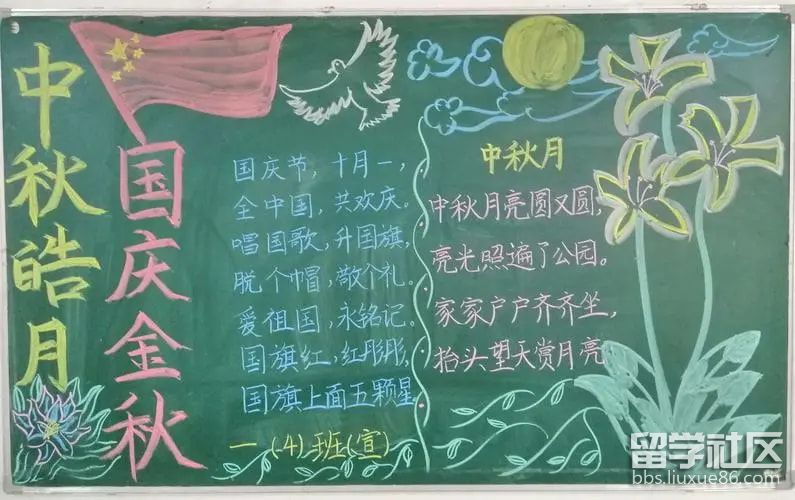 中秋皓月
国庆金秋
国庆节，十月一，
全中国，共欢庆。
唱国歌，升国旗，
脱个帽，敬个礼。
爱祖国，永铭记。
国旗红，红彤彤，
国旗上面五颗星
一（4）班（宣）
中秋月
中秋月亮圆又圆，
亮光照遍了公园。
家家户户齐齐坐，
抬头望天赏月亮
留学社区
bbs.liuxue86.com